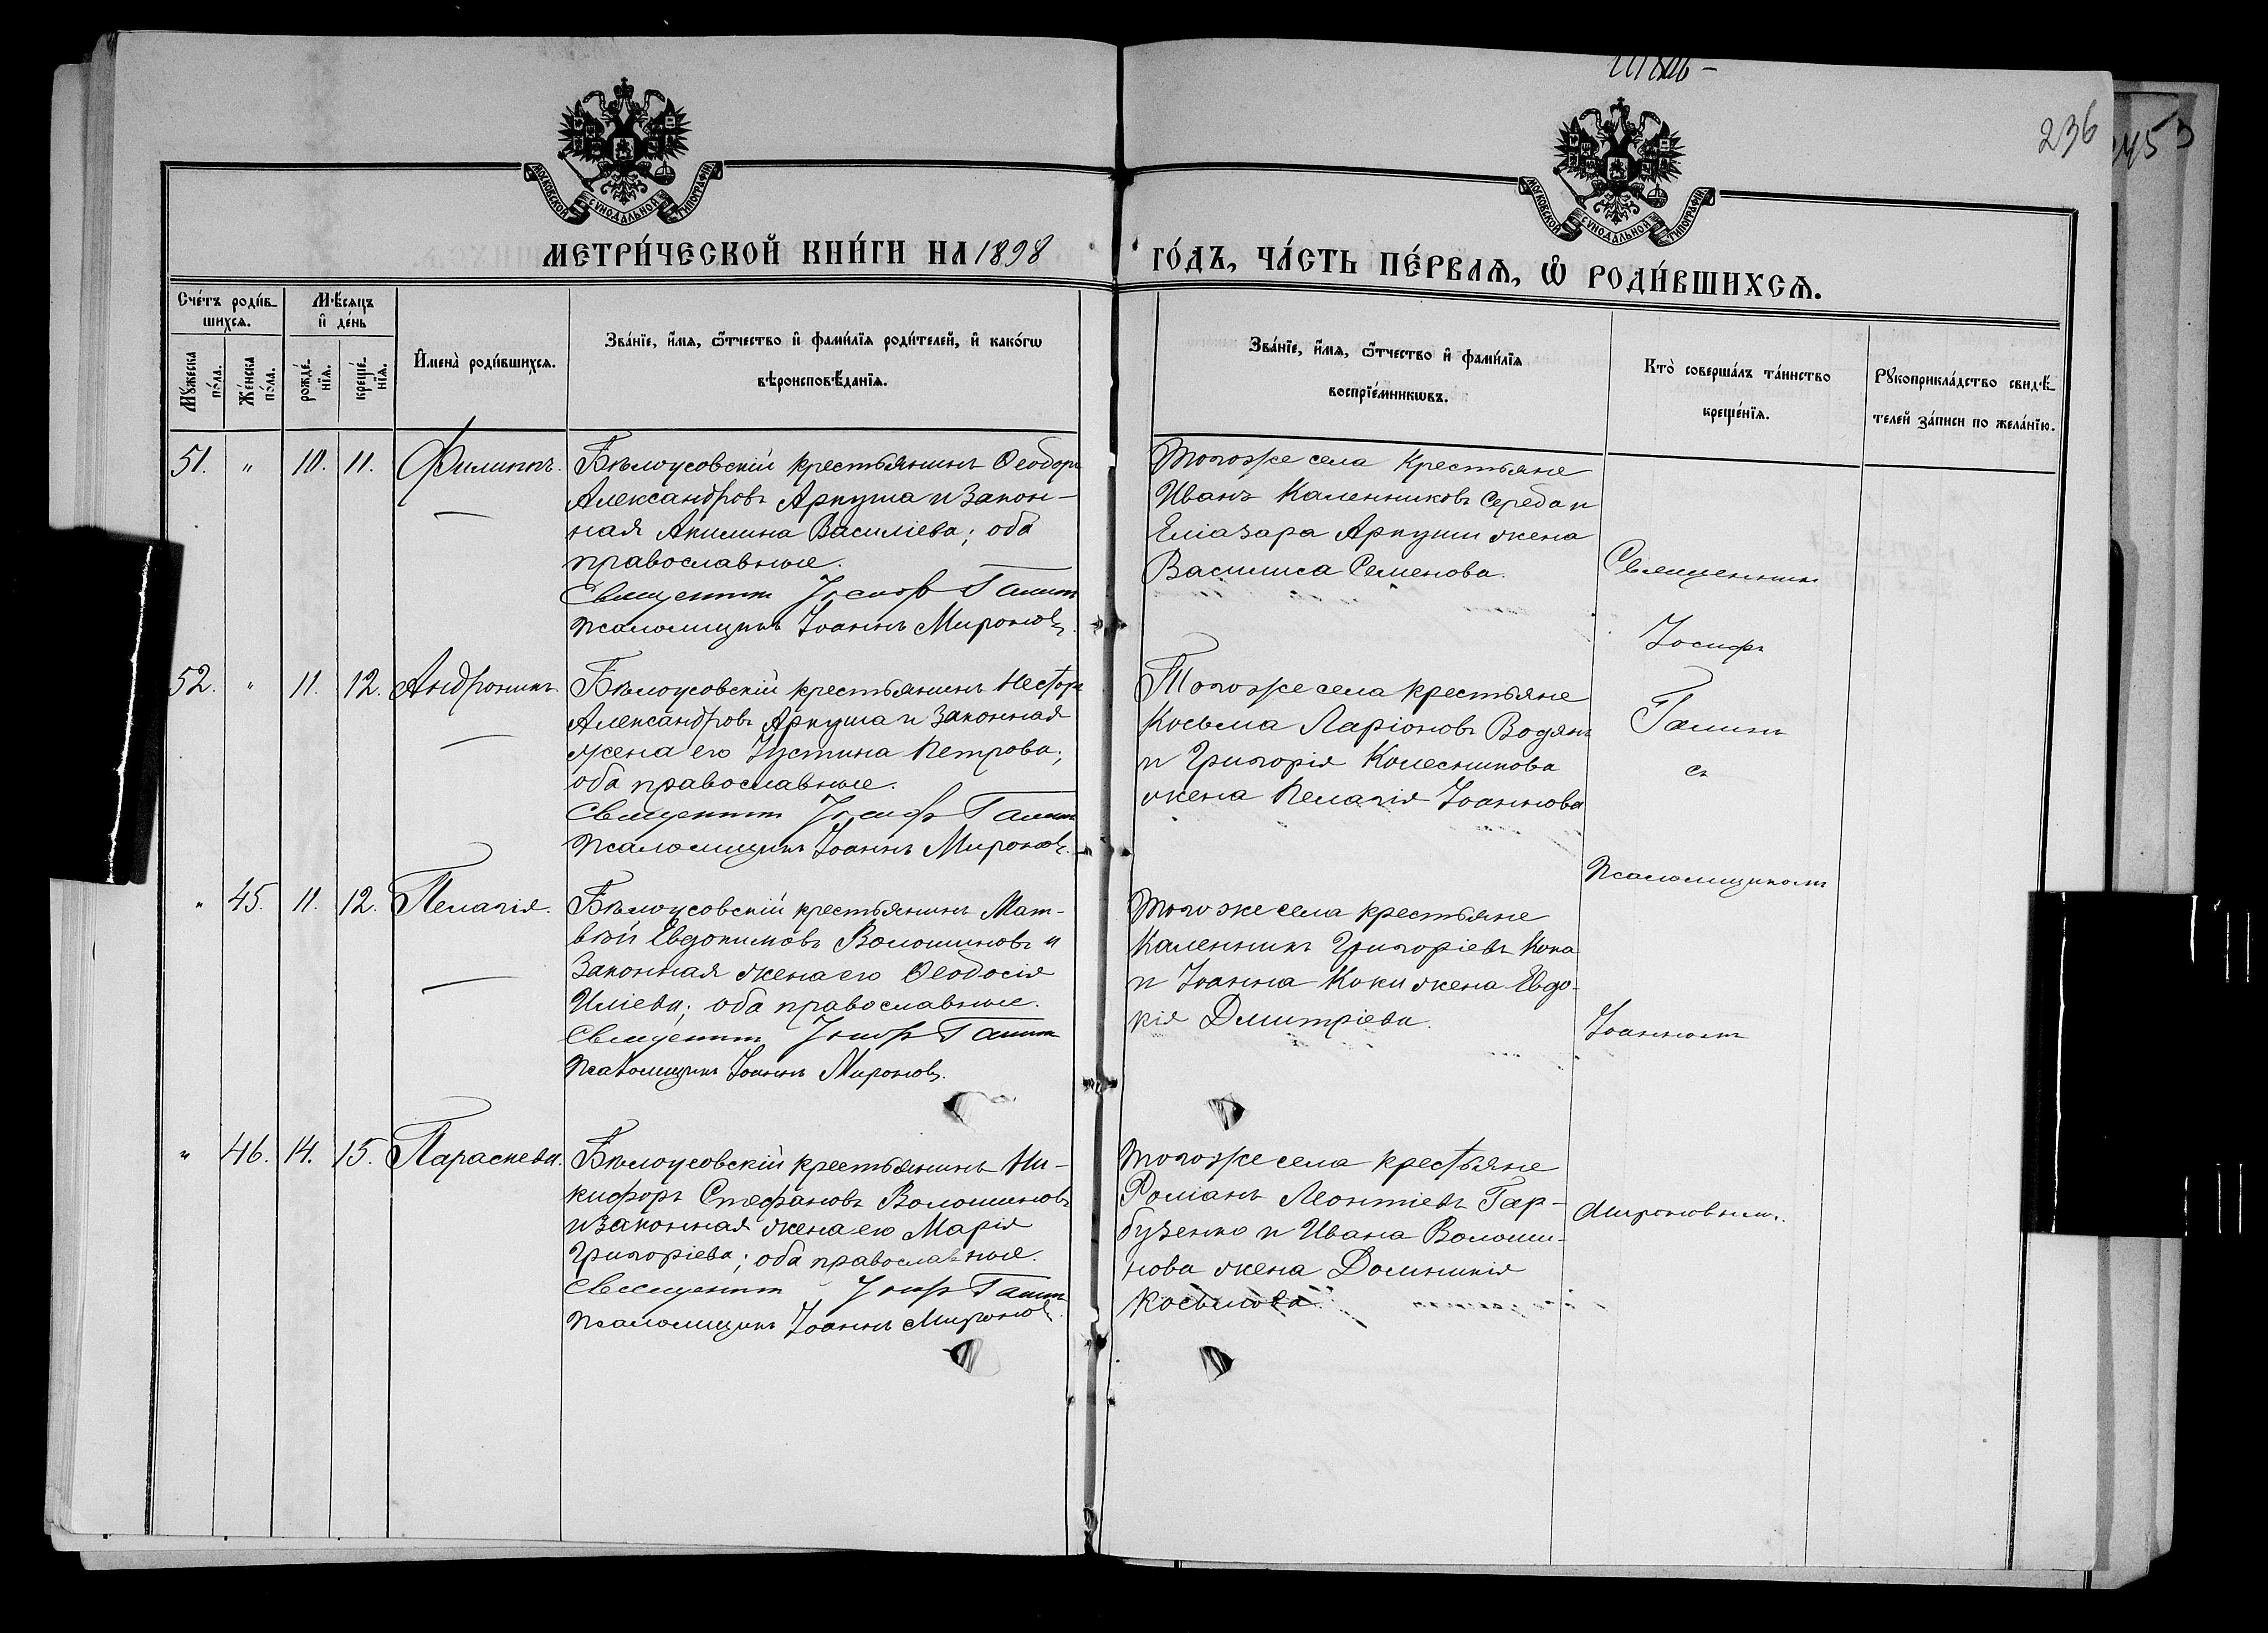 236
245
МОСКОВСКОЙ СѴНОДАЛЬНОЙ ТИПОГРАФІИ
МОСКОВСКОЙ СѴНОДАЛЬНОЙ ТИПОГРАФІИ
МЕТРИ́ЧЕСКОЙ КНИ́ГИ НА 1898 ГО́ДЪ, ЧА́СТЬ ПЕ́РВАѦ, Ѽ РОДИ́ВШИХСѦ.
Сче́тъ роди́в-
шихсѧ.
Мꙋ́жеска по́ла.
Же́нска по́ла.
Мѣ́сяцъ
и҆ де́нь
рожде́-
нїѧ.
креще́-
нїѧ.
И҆мена̀ роди́вшихсѧ.
Зва́нїе, и҆́мѧ, ѻ҆́тчество и҆ фами́лїѧ роди́телей, и҆ како́гѡ
вѣроисповѣ́данїѧ.
Зва́нїе, и҆́мѧ, ѻ҆́тчество и҆ фами́лїѧ
воспрїе́мникѡвъ.
Кто̀ соверша́лъ та́инство
креще́нїѧ.
Рꙋкоприкла́дство свидѣ́-
телей за́писи по жела́нїю.
51. " 10. 11. Филиппъ.
Бѣлоусовскій крестьянинъ Ѳеодоръ
Александровъ Аркуша и закон-
ная Акилина Василіева; оба
православные.
Священникъ Іосифъ Ганинъ
Псаломщикъ Іоаннъ Мироновъ
Тогоже села крестьяне
Иванъ Каленниковъ Середа и
Еліазара Аркуши жена
Василиса Семенова.
52. " 11. 12. Андроникъ.
Бѣлоусовскій крестьянинъ Несторъ
Александровъ Аркуша и законная
жена его Іустина Петрова;
оба православные.
Священникъ Іосифъ Ганинъ
Псаломщикъ Іоаннъ Мироновъ.
Тогоже села крестьяне
Косьма Ларіоновъ Водянъ
и Григорія Колесникова
жена Пелагія Іоаннова
" 45. 11. 12. Пелагія.
Бѣлоусовскій крестьянинъ Мат-
вѣй Евдокимовъ Волошиновъ и
законная жена его Ѳеодосія
Иліева; оба православные.
Священникъ Іосифъ Ганинъ
Псаломщикъ Іоаннъ Мироновъ.
Тогоже села крестьяне
Каленникъ Григоріевъ Кока
и Іоанна Коки жена Евдо-
кія Дмитріева.
" 46. 14. 15. Параскева.
Бѣлоусовскій крестьянинъ Ни-
кифоръ Стефановъ Волошиновъ
и законная жена его Марія
Григоріева; оба православные.
Священникъ Іосифъ Ганинъ
Псаломщикъ Іоаннъ Мироновъ
Тогоже села крестьяне
Романъ Леонтіевъ Гар-
бузенко и Ивана Волоши-
нова жена Домникія
Косьмова.
Священникъ
Іосифъ
Ганинъ
съ
Псаломщикомъ
Іоанномъ
Мироновымъ.